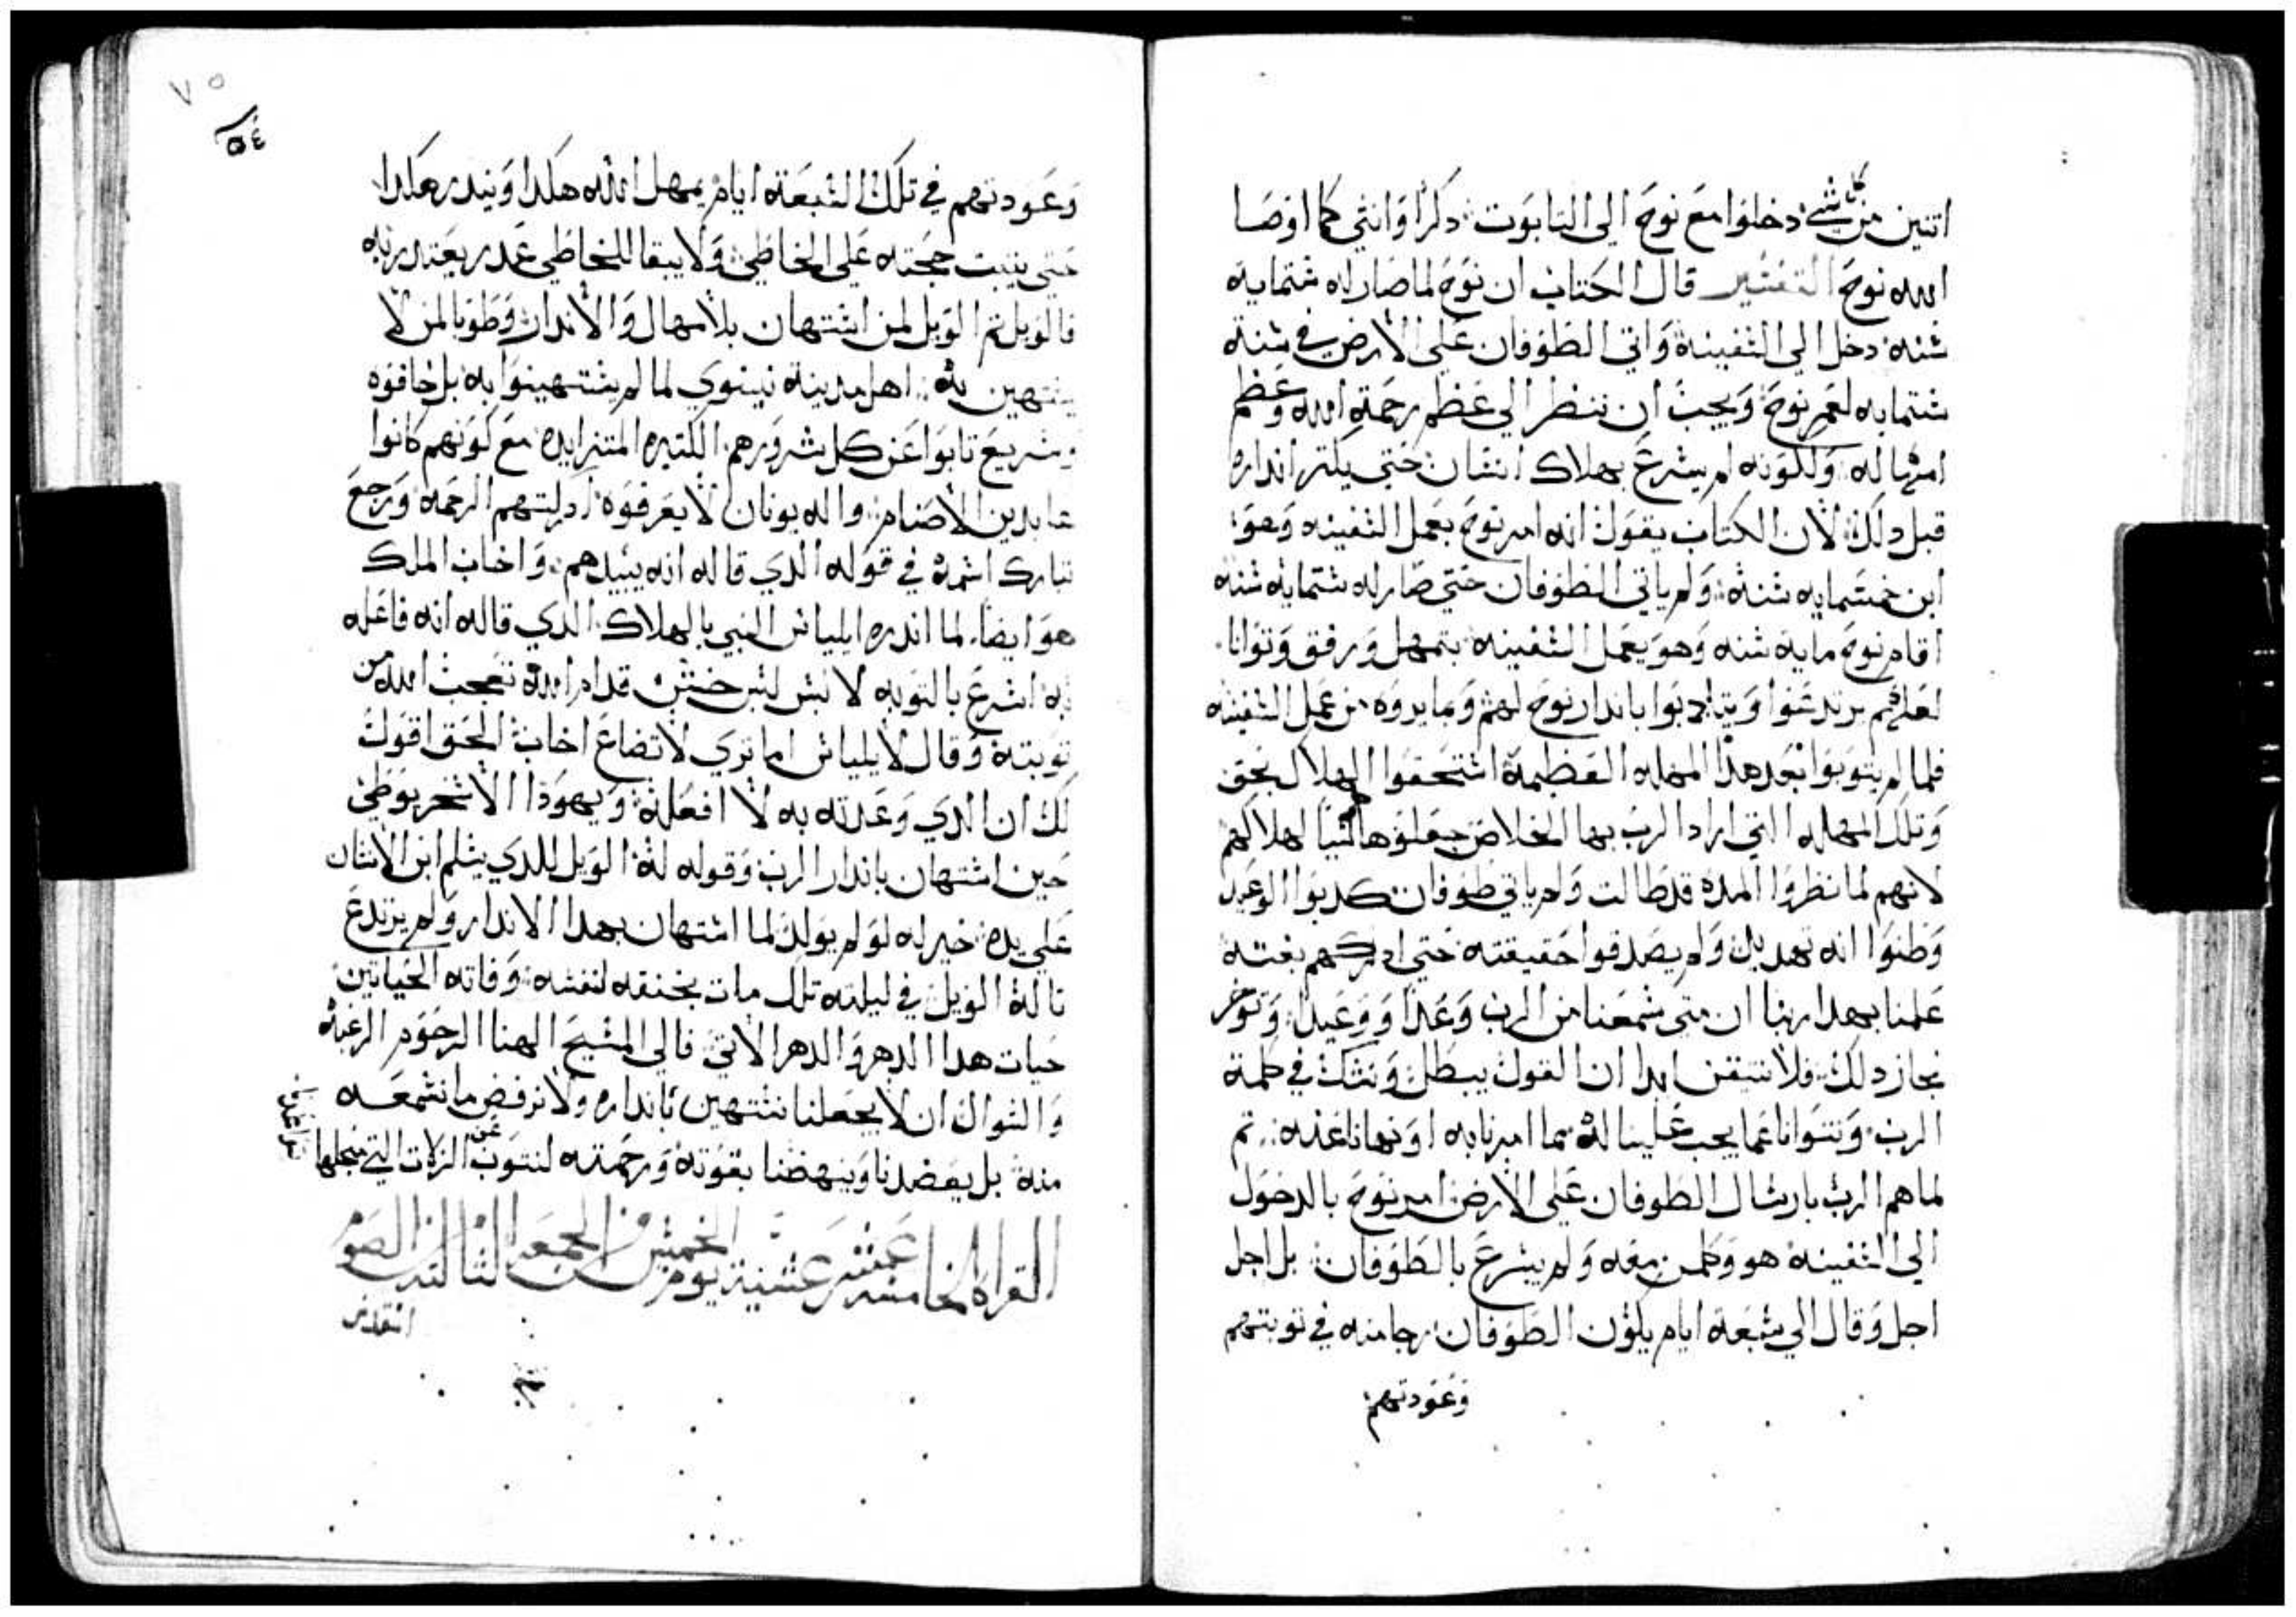 اتنين من كل شي دخلوا مع نوح الي التابوت دكرا وانتي كما اوصا
الله نوح التفسير قال الكتاب ان نوح لما صار له ستمايه
سنه دخل الي السفينة واتي الطوفان علي الارض في سنة
ستمايه لعمر نوح ويجب ان ننظر الي عظم رحمة الله وعظم
امهاله ولكونه لم يسرع بهلاك انسان حتي يكتر انداره
قبل دلك لان الكتاب يقول انه امر نوح بعمل السفينه وهو
ابن خمسمايه سنة ولم ياتي الطوفان حتي صار له ستمايه سنه
اقام نوح مايه سنه وهو يعمل السفينه بتمهل ورفق وتوانا
لعلهم يرتدعوا ويتادبوا باندار نوح لهم وما يروه من عمل السفينه
فلما لم يتوبوا بعد هذا المهله العظيمة استحقوا الهلاك بحق
وتلك المهله التي اراد الرب بها الخلاص جعلوها سببا لهلاكهم
لانهم لما نظروا المده قد طالت ولم ياتي طوفان كدبوا الوعيد
وظنوا انه تهديد ولم يصدقوا حقيقته حتي ادركهم بغتة
علمنا بهدا ربنا ان متي سمعنا من الرب وعدا ووعيد وتوخر
نجاز دلك فلا نتيقن ابدا ان القول يبطل ونشك في كلمة
الرب ونتوانا عما يجب علينا لله مما امرنا به او نهانا عنه تم
لما هم الرب بارسال الطوفان علي الارض امر نوح بالدخول
الي السفينه هو وكلمن معه ولم يسرع بالطوفان بل اجل
اجل وقال الي سبعة ايام يكون الطوفان رجا منه في توبتهم
وعودتهم
٧٥
٥٤
وعودتهم في تلك السبعة ايام يمهل الله هكدا ويندر هكدا
حتي يتبت حجته علي الخاطي ولا يبقا للخاطي عدر يعتدر به
فالويل تم الويل لمن استهان بالامهال والاندار وطوبا لمن لا
يستهين به اهل مدينة نينوي لما لم يستهينوا به بل خافوه
وسريع تابوا عن كل شرورهم الكتيره المتزايده مع كونهم كانوا
عابدين الاصنام واله يونان لا يعرفوه ادركتهم الرحمه ورجع
تبارك اسمه في قوله الدي قاله انه يبيدهم واخاب الملك
هو ايضا لما اندره ايلياس النبي بالهلاك الدي قاله انه فاعله
به اسرع بالتوبه لابس لبس خشن قدام الله تعجب الله من
توبته وقال لايلياس اما تري لاتضاع اخاب الحق اقول
لك ان الدي وعدته به لا افعله ويهودا الاسخريوطي
حين استهان باندار الرب وقوله له الويل للدي يسلم ابن الانسان
علي يده خير له لو لم يولد لما استهان بهدا الاندار ولم يرتدع
ناله الويل في ليلته تلك مات بخنقه لنفسه وفاته الحياتين
حيات هدا الدهر والدهر الاتي فالي المسيح الهنا الرحوم الرغبه
والسوال ان لا يجعلنا نستهين بانداره ولا نرفض ما نسمعه
منه بل يعضدنا وينهضنا بقوته ورحمته لنتوب عن الزلات التي
القراه الخامسه عشر عشية يوم الخميس من الجمعه التالته من الصوم
المقدس